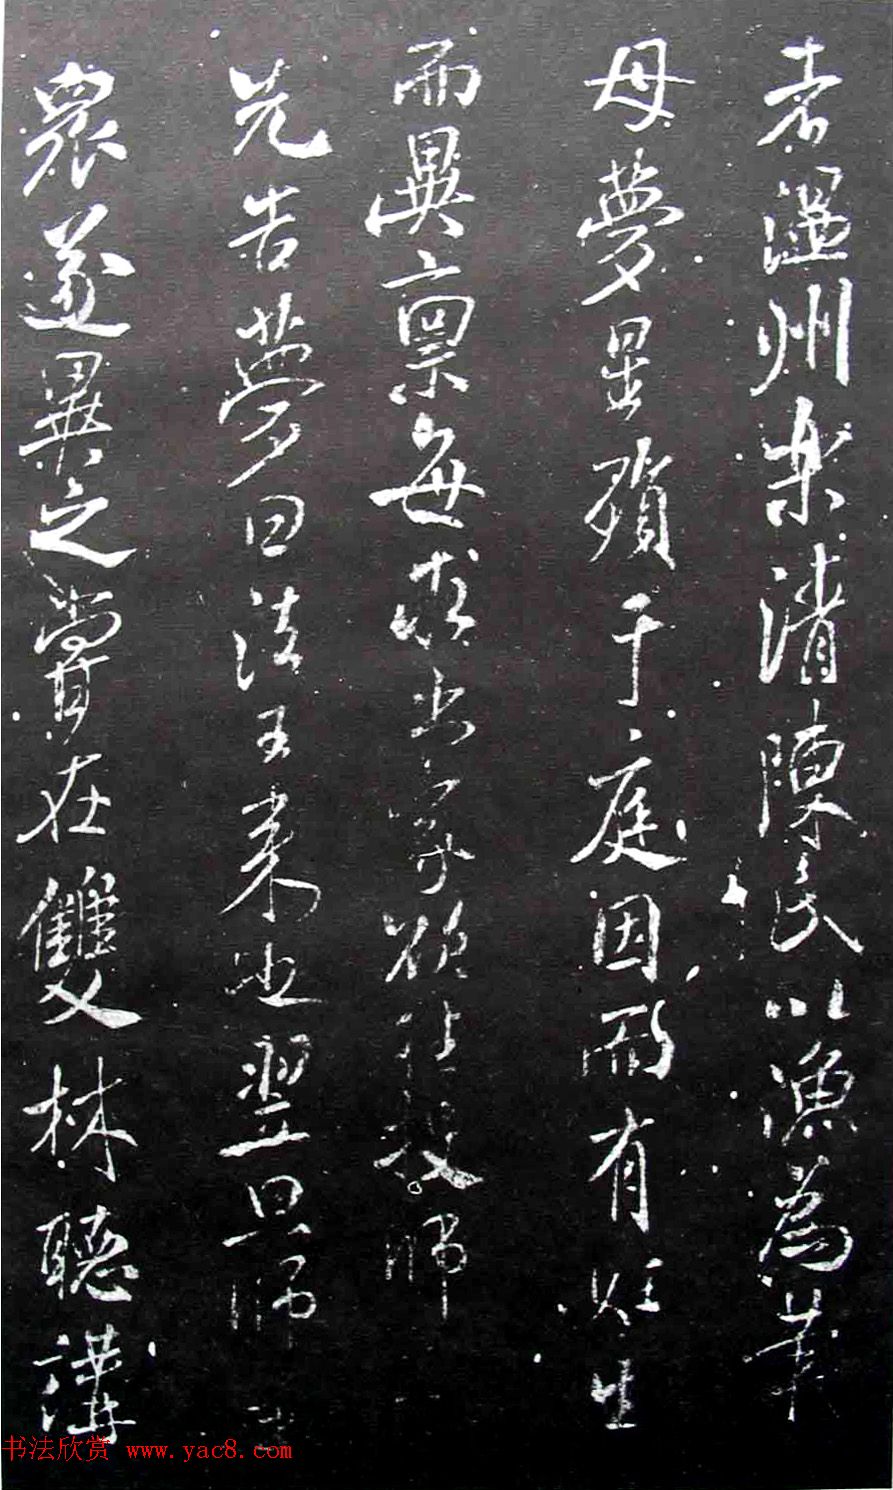 者溫州樂清陳氏以漁為業
母夢星殞于庭因而有娠生
而異稟每求出家欲往投師
先告夢曰法王來也翌旦師
眾遂異之嘗在雙林聽講
书法欣赏 www.yac8.com